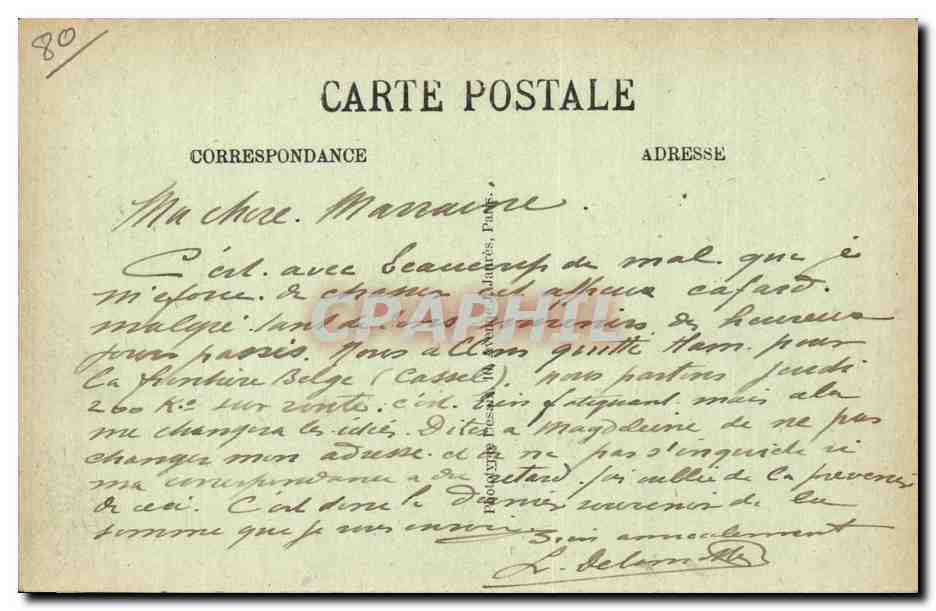 80
CARTE POSTALE
CORRESPONDANCE
ADRESSE
Ma chere Marraine.
C'est avec beaucoup de mal que je
m'efforce de chasser cet affreux cafard.
malgré tant de bons souvenirs des heureux
jours passés. Nous allons quitté Ham pour
la frontière Belge (Cassel). nous partons jeudi
200 Kos sur route. c'est bien fatiguant mais cela
me changera les idées. Dites a Magdeleine de ne pas
changer mon adresse et de ne pas s'inquieté si
ma correspondance a du retard. j'ai oublié de la prévenir
de ceci. C'est donc le dernier souvenir de la
somme que je vous envoie
Bien amicalement
L. Delamotte
Phototypie Desaix, Avenue J. Jaurès, Paris.
CPAPHIL